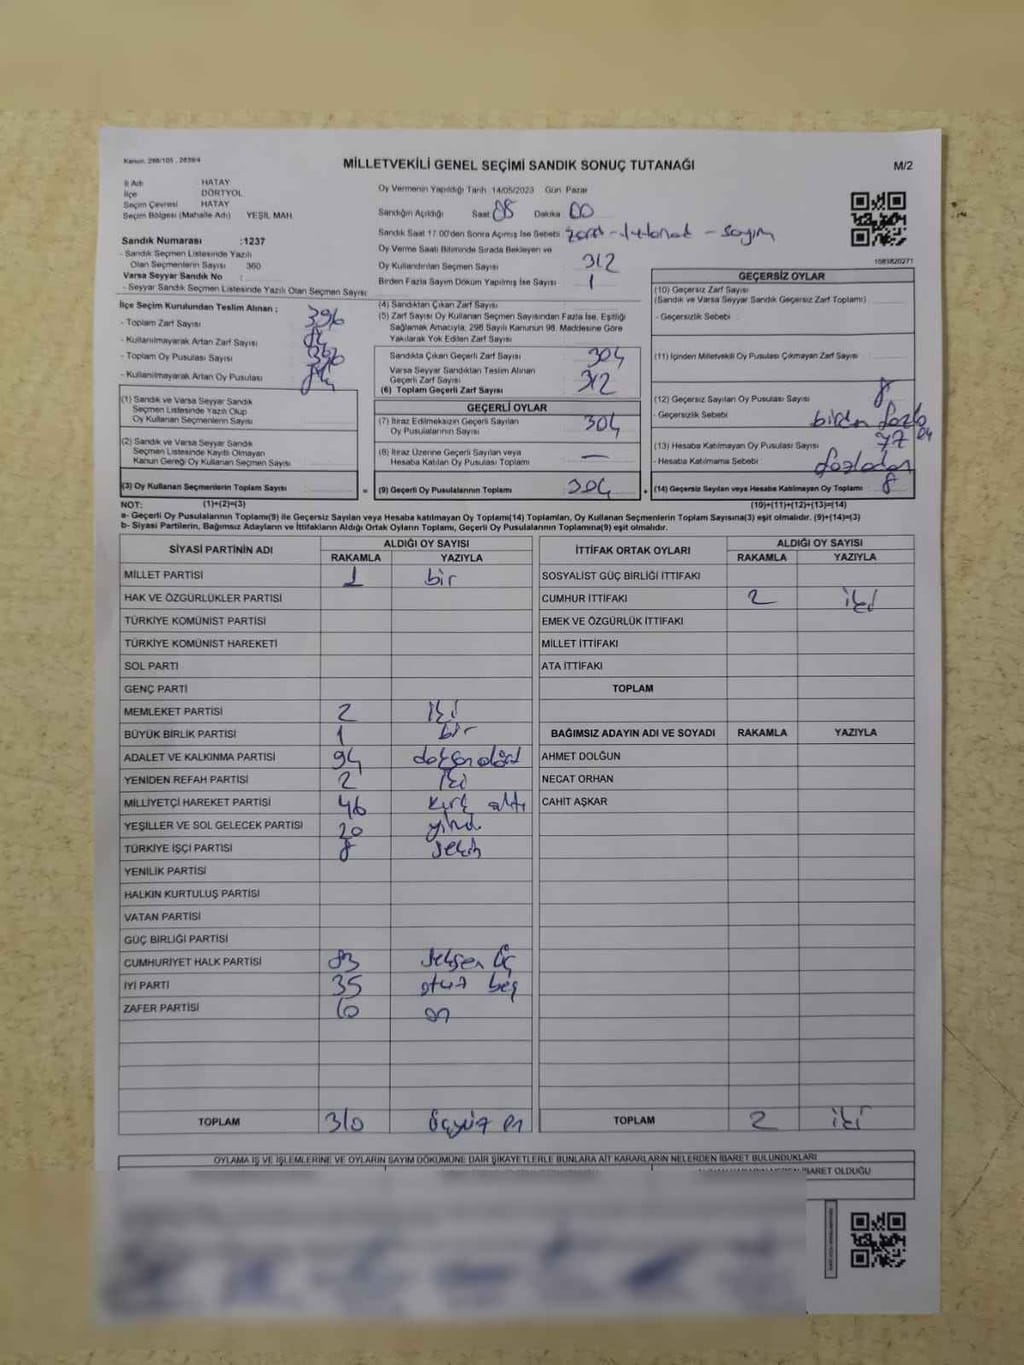 Kanun: 298/105 , 2839/4
MİLLETVEKİLİ GENEL SEÇİMİ SANDIK SONUÇ TUTANAĞI
M/2
İl Adı HATAY
İlçe DÖRTYOL
Seçim Çevresi HATAY
Seçim Bölgesi (Mahalle Adı) YEŞİL MAH.
Sandık Numarası :1237
- Sandık Seçmen Listesinde Yazılı
Olan Seçmenlerin Sayısı 360
Varsa Seyyar Sandık No :
- Seyyar Sandık Seçmen Listesinde Yazılı Olan Seçmen Sayısı:
Oy Vermenin Yapıldığı Tarih 14/05/2023 Gün Pazar
Sandığın Açıldığı Saat 08 Dakika 00
Sandık Saat 17:00'den Sonra Açılmış İse Sebebi
Oy Verme Saati Bitiminde Sırada Bekleyen ve
Oy Kullandırılan Seçmen Sayısı 312
Birden Fazla Sayım Döküm Yapılmış İse Sayısı 1
1581820271
İlçe Seçim Kurulundan Teslim Alınan ;
- Toplam Zarf Sayısı 396
- Kullanılmayarak Artan Zarf Sayısı 84
- Toplam Oy Pusulası Sayısı
- Kullanılmayarak Artan Oy Pusulası 84
(1) Sandık ve Varsa Seyyar Sandık
Seçmen Listesinde Yazılı Olup
Oy Kullanan Seçmenlerin Sayısı
(2) Sandık ve Varsa Seyyar Sandık
Seçmen Listesinde Kayıtlı Olmayan
Kanun Gereği Oy Kullanan Seçmen Sayısı
(3) Oy Kullanan Seçmenlerin Toplam Sayısı =
(4) Sandıktan Çıkan Zarf Sayısı
(5) Zarf Sayısı Oy Kullanan Seçmen Sayısından Fazla İse, Eşitliği
Sağlamak Amacıyla, 298 Sayılı Kanunun 98. Maddesine Göre
Yakılarak Yok Edilen Zarf Sayısı
Sandıkta Çıkan Geçerli Zarf Sayısı 304
Varsa Seyyar Sandıktan Teslim Alınan
Geçerli Zarf Sayısı 312
(6) Toplam Geçerli Zarf Sayısı
GEÇERLİ OYLAR
(7) İtiraz Edilmeksizin Geçerli Sayılan
Oy Pusulalarının Sayısı 304
(8) İtiraz Üzerine Geçerli Sayılan veya
Hesaba Katılan Oy Pusulası Toplamı —
(9) Geçerli Oy Pusulalarının Toplamı 304 +
GEÇERSİZ OYLAR
(10) Geçersiz Zarf Sayısı
(Sandık ve Varsa Seyyar Sandık Geçersiz Zarf Toplamı)
- Geçersizlik Sebebi
(11) İçinden Milletvekili Oy Pusulası Çıkmayan Zarf Sayısı
(12) Geçersiz Sayılan Oy Pusulası Sayısı 8
- Geçersizlik Sebebi birden fazla
(13) Hesaba Katılmayan Oy Pusulası Sayısı 77
- Hesaba Katılmama Sebebi fazladan
(14) Geçersiz Sayılan veya Hesaba Katılmayan Oy Toplamı 8
NOT: (1)+(2)=(3) (10)+(11)+(12)+(13)=(14)
a- Geçerli Oy Pusulalarının Toplamı(9) ile Geçersiz Sayılan veya Hesaba katılmayan Oy Toplamı(14) Toplamları, Oy Kullanan Seçmenlerin Toplam Sayısına(3) eşit olmalıdır. (9)+(14)=(3)
b- Siyasi Partilerin, Bağımsız Adayların ve İttifakların Aldığı Ortak Oyların Toplamı, Geçerli Oy Pusulalarının Toplamına(9) eşit olmalıdır.
SİYASİ PARTİNİN ADI ALDIĞI OY SAYISI
RAKAMLA YAZIYLA
MİLLET PARTİSİ 1 bir
HAK VE ÖZGÜRLÜKLER PARTİSİ
TÜRKİYE KOMÜNİST PARTİSİ
TÜRKİYE KOMÜNİST HAREKETİ
SOL PARTİ
GENÇ PARTİ
MEMLEKET PARTİSİ 2 iki
BÜYÜK BİRLİK PARTİSİ 1 bir
ADALET VE KALKINMA PARTİSİ 94 doksan dört
YENİDEN REFAH PARTİSİ 2 iki
MİLLİYETÇİ HAREKET PARTİSİ 46 kırk altı
YEŞİLLER VE SOL GELECEK PARTİSİ 20 yirmi
TÜRKİYE İŞÇİ PARTİSİ 8 sekiz
YENİLİK PARTİSİ
HALKIN KURTULUŞ PARTİSİ
VATAN PARTİSİ
GÜÇ BİRLİĞİ PARTİSİ
CUMHURİYET HALK PARTİSİ 83 seksen üç
İYİ PARTİ 35 otuz beş
ZAFER PARTİSİ 10 on
TOPLAM 310 üçyüz on
İTTİFAK ORTAK OYLARI ALDIĞI OY SAYISI
RAKAMLA YAZIYLA
SOSYALİST GÜÇ BİRLİĞİ İTTİFAKI
CUMHUR İTTİFAKI 2 iki
EMEK VE ÖZGÜRLÜK İTTİFAKI
MİLLET İTTİFAKI
ATA İTTİFAKI
TOPLAM
BAĞIMSIZ ADAYIN ADI VE SOYADI RAKAMLA YAZIYLA
AHMET DOLĞUN
NECAT ORHAN
CAHİT AŞKAR
TOPLAM 2 iki
OYLAMA İŞ VE İŞLEMLERİNE VE OYLARIN SAYIM DÖKÜMÜNE DAİR ŞİKAYETLERLE BUNLARA AİT KARARLARIN NELERDEN İBARET BULUNDUKLARI
İBARET OLDUĞU